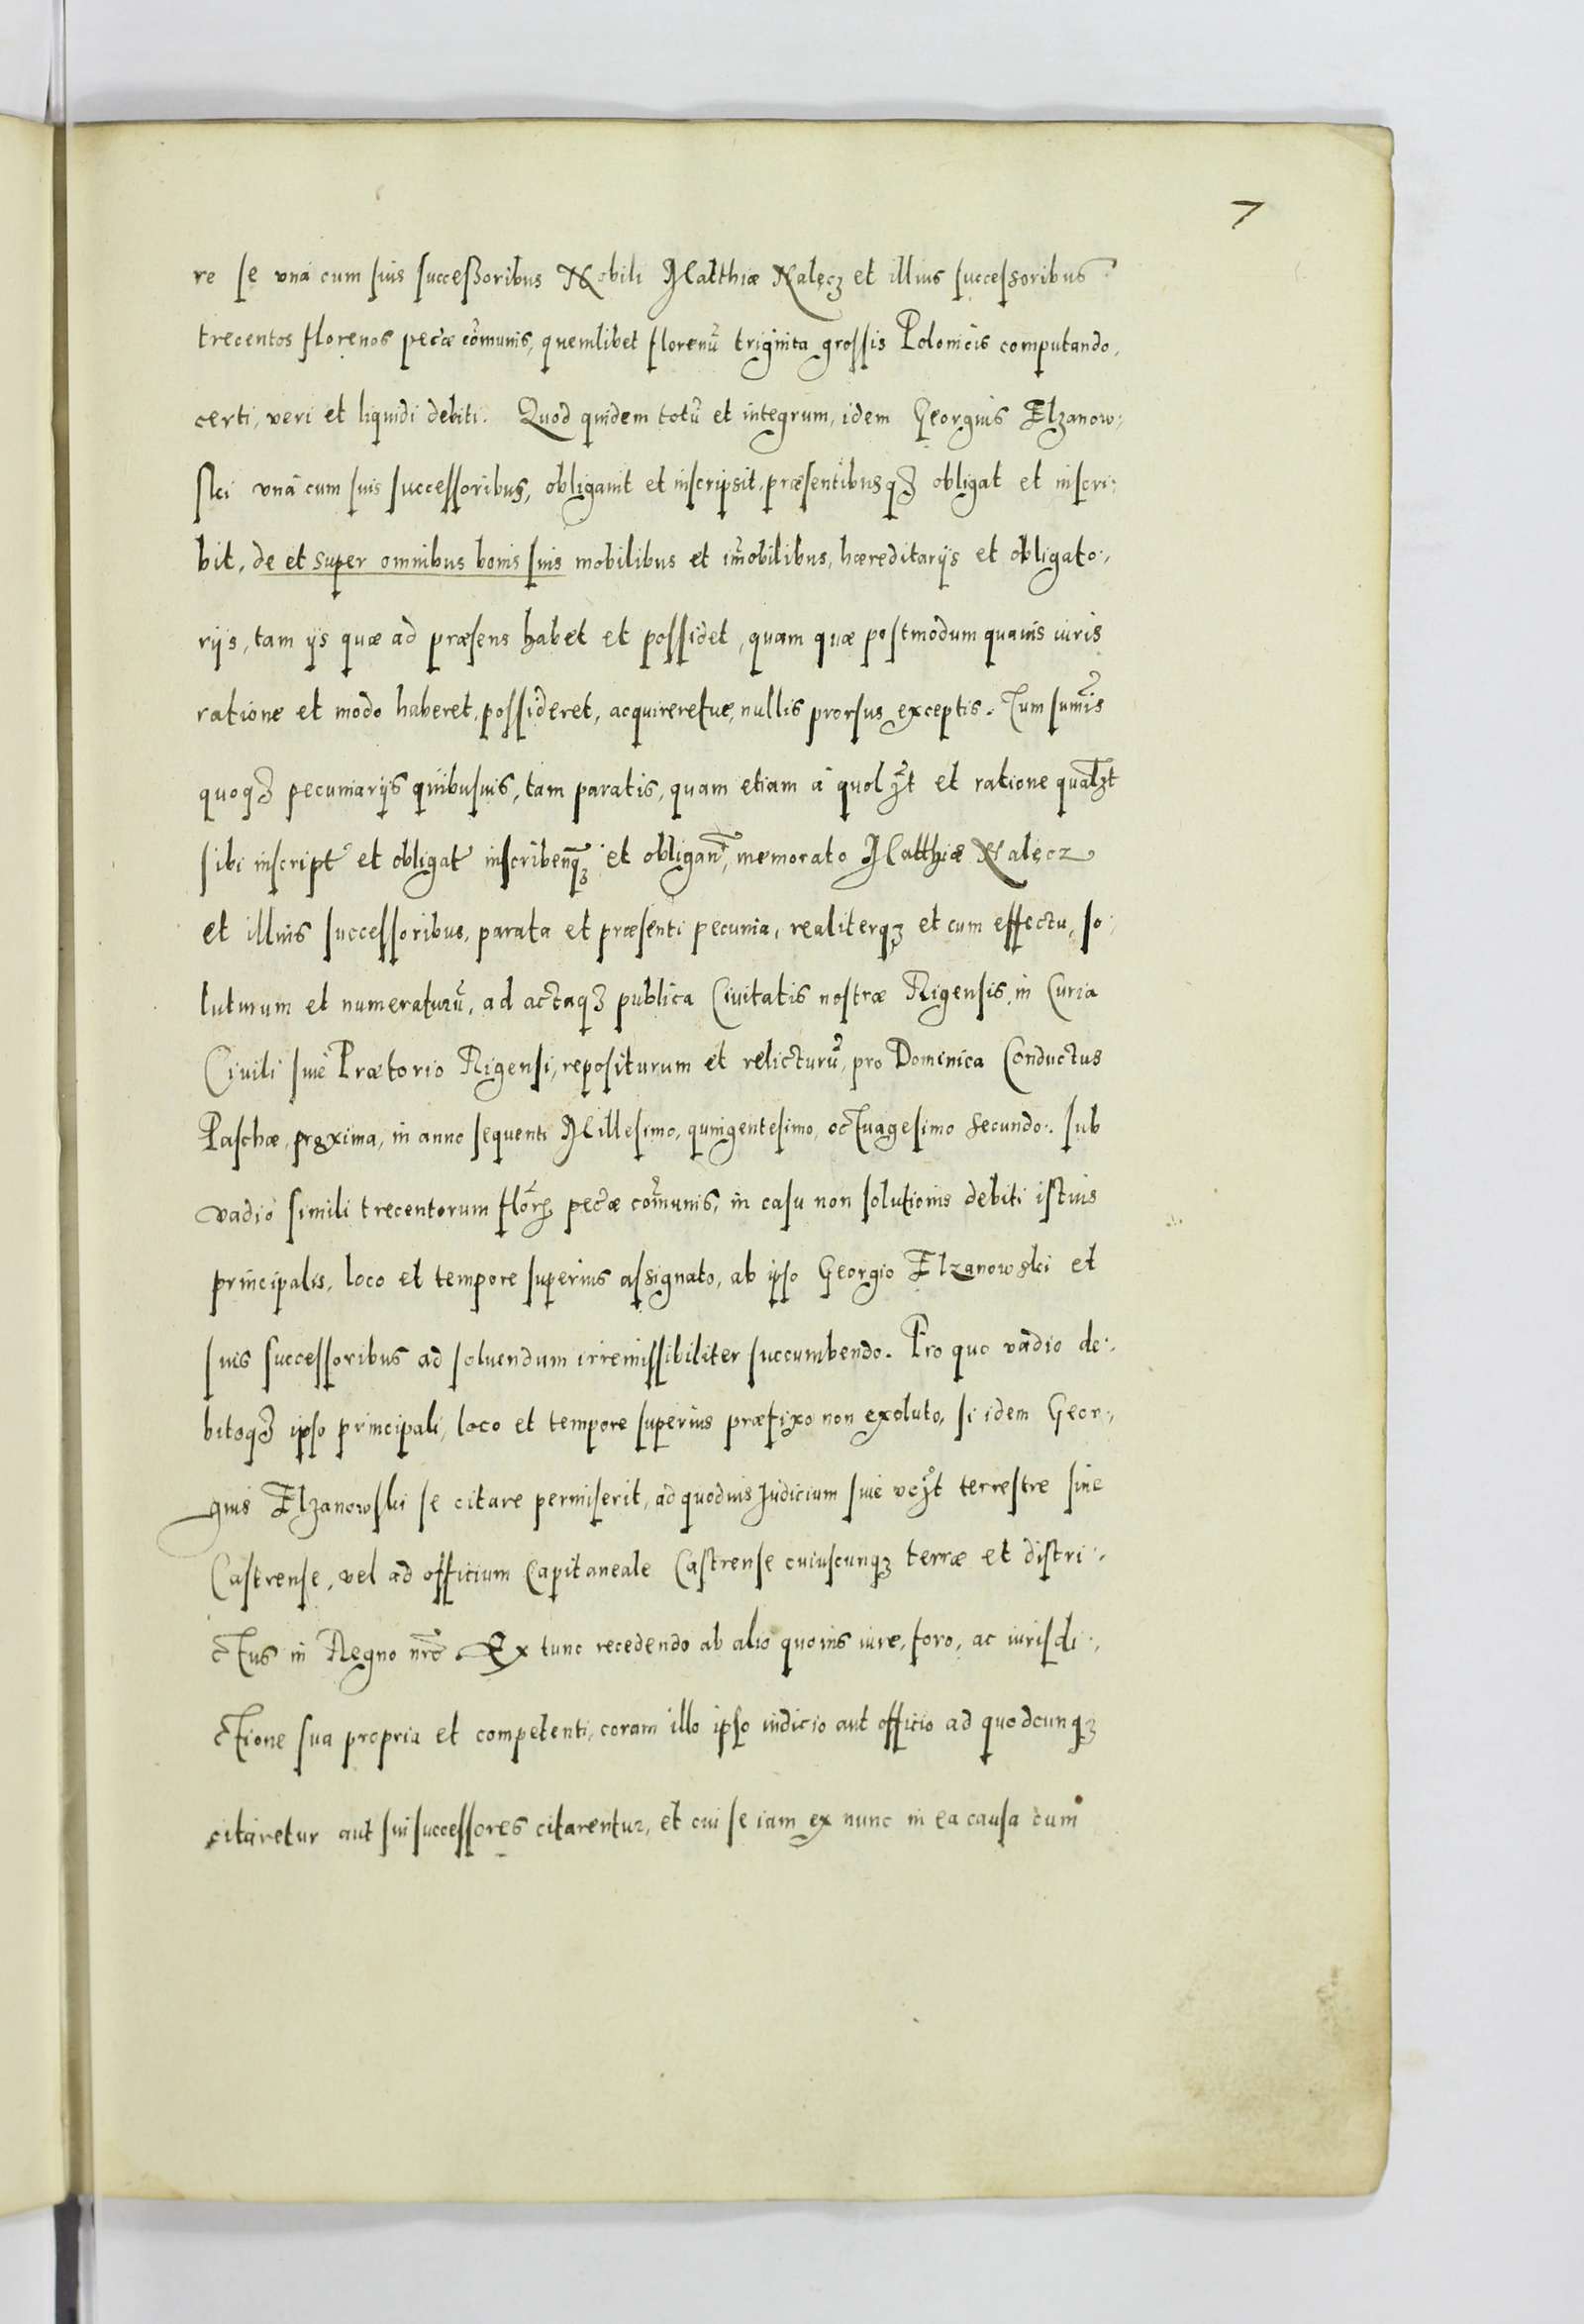 7
re se vna cum suis successoribus Nobili Matthiæ Nalęcz et illius successoribus
trecentos florenos pecæ cõmunis, quemlibet florenũ triginta grossis Polonicis computando,
certi, veri et liquidi debiti. Quod quidem totũ et integrum, idem Georgius Elzanow:
ski vnà cum suis successoribus, obligauit et inscripsit, præsentibusqȝ obligat et inscri:
bit, de et super omnibus bonis suis mobilibus et im̃obilibus, hæreditarijs et obligato:,
rijs, tam ijs quæ ad præsens habet et possidet, quam quæ postmodum quauis iuris
ratione et modo haberet, possideret, acquireretue, nullis prorsus exceptis. Tum sum̃is
quoqȝ pecuniarijs quibusuis, tam paratis, quam etiam à quolȝt et ratione qualȝt
sibi inscript et obligat inscribenqȝ et obligan, memorato Matthiæ Nalęcz
et illius successoribus, parata et præsenti pecunia, realiterqȝ et cum effectu, so:
luturum et numeraturũ, ad actaqȝ publica Ciuitatis nostræ Rigensis, in Curia
Ciuili siue Prætorio Rigensi, repositurum et relicturũ, pro Dominica Conductus
Paschæ, proxima, in anno sequenti Millesimo, quingentesimo, octuagesimo secundo. sub
vadio simili trecentorum florꝝ pecæ com̃unis, in casu non solutionis debiti istius
principalis, loco et tempore superius assignato, ab ipso Georgio Elzanowski et
suis successoribus ad soluendum irremissibiliter succumbendo. Pro quo vadio de:,
bitoqȝ ipso principali, loco et tempore superius præfixo non exoluto, si idem Geor:,
gius Elzanowski se citare permiserit, ad quoduis Iudicium siue vȝt terrestre siue
Castrense, vel ad officium Capitaneale Castrense cuiuscunqȝ terræ et distri:,
ctus in Regno nrõ Ex tunc recedendo ab alio quouis iure, foro, ac iurisdi:,
ctione sua propria et competenti, coram illo ipso iudicio aut officio ad quodcunqȝ
citaretur aut sui successores citarentur, et cui se iam ex nunc in ea causa cum